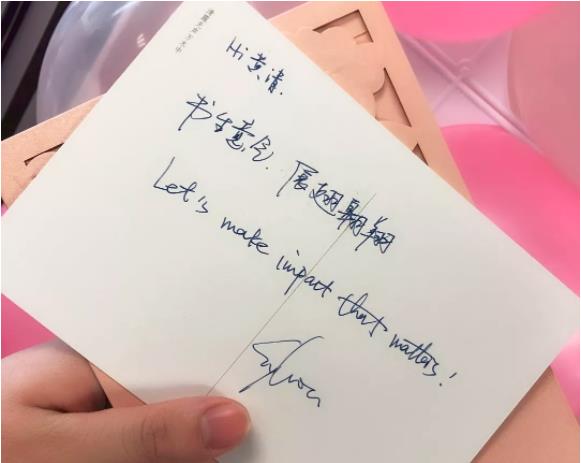 Hi 黄清.
书生意气. 展翅翱翔
Let's make impact that matters!